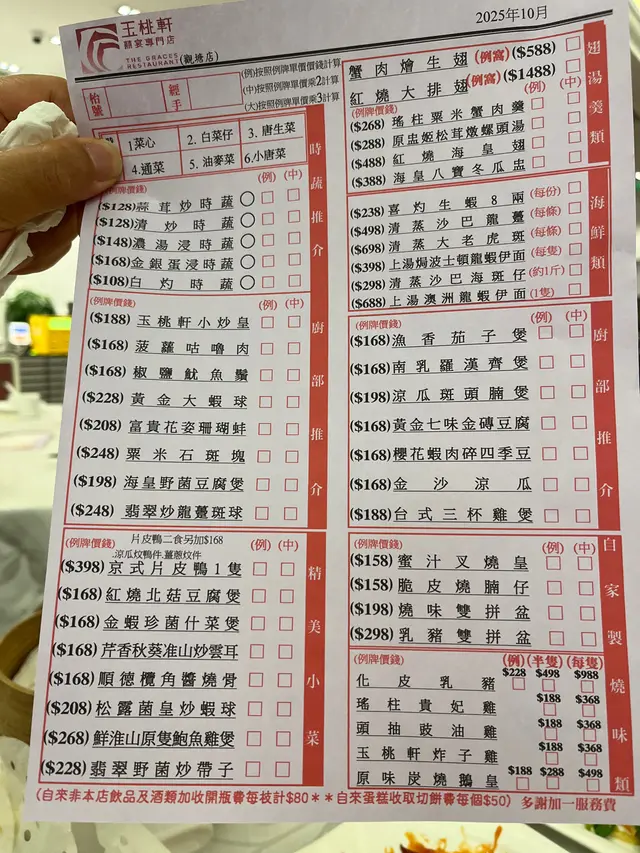 玉桃軒
囍宴專門店
THE GRACES
RESTAURANT(觀塘店)
2025年10月
枱號
經手
(例)按照例牌單價價錢計算
(中)按照例牌單價乘2計算
(大)按照例牌單價乘3計算
1菜心 2. 白菜仔 3. 唐生菜
4.通菜 5. 油麥菜 6.小唐菜
時蔬推介
(例牌價錢) (例) (中)
($128)蒜茸炒時蔬
($128)清炒時蔬
($148)濃湯浸時蔬
($168)金銀蛋浸時蔬
($108)白灼時蔬
(例牌價錢) (例) (中)
廚部推介
($188) 玉桃軒小炒皇
($168) 菠蘿咕嚕肉
($168) 椒鹽魷魚鬚
($228) 黃金大蝦球
($208) 富貴花姿珊瑚蚌
($248) 粟米石斑塊
($198) 海皇野菌豆腐煲
($248) 翡翠炒龍躉斑球
片皮鴨二食另加$168
(例牌價錢) ,涼瓜炆鴨件,薑蔥炆件 (例) (中)
精美小菜
($398) 京式片皮鴨1隻
($168) 紅燒北菇豆腐煲
($168) 金蝦珍菌什菜煲
($168) 芹香秋葵准山炒雲耳
($168) 順德欖角醬燒骨
($208) 松露菌皇炒蝦球
($268) 鮮淮山原隻鮑魚雞煲
($228) 翡翠野菌炒帶子
蟹肉燴生翅(例窩)($588)
紅燒大排翅(例窩)($1488)
翅湯羹類
(例) (中)
($268) 瑤柱粟米蟹肉羹
($288) 原盅姬松茸燉螺頭湯
($488) 紅燒海皇翅
($388) 海皇八寶冬瓜盅
海鮮類
($238) 喜灼生蝦8兩(每份)
($498) 清蒸沙巴龍躉(每條)
($698) 清蒸大老虎斑(每條)
($398) 上湯焗波士頓龍蝦伊面(每隻)
($298) 清蒸沙巴海斑仔(約1斤)
($688) 上湯澳洲龍蝦伊面(1隻)
(例牌價錢) (例) (中)
廚部推介
($168)漁香茄子煲
($168)南乳羅漢齊煲
($198)涼瓜斑頭腩煲
($168)黃金七味金磚豆腐
($168)櫻花蝦肉碎四季豆
($168)金沙涼瓜
($188)台式三杯雞煲
(例牌價錢) (例) (中)
自家製燒味類
($158)蜜汁叉燒皇
($158)脆皮燒腩仔
($198)燒味雙拼盆
($298)乳豬雙拼盆
(例牌價錢) (例) (半隻) (每隻)
化皮乳豬 $228 $498 $988
瑤柱貴妃雞 $188 $368
頭抽豉油雞 $188 $368
玉桃軒炸子雞 $188 $368
原味炭燒鵝皇 $188 $288 $498
(自來非本店飲品及酒類加收開瓶費每枝計$80**自來蛋糕收取切餅費每個$50) 多謝加一服務費